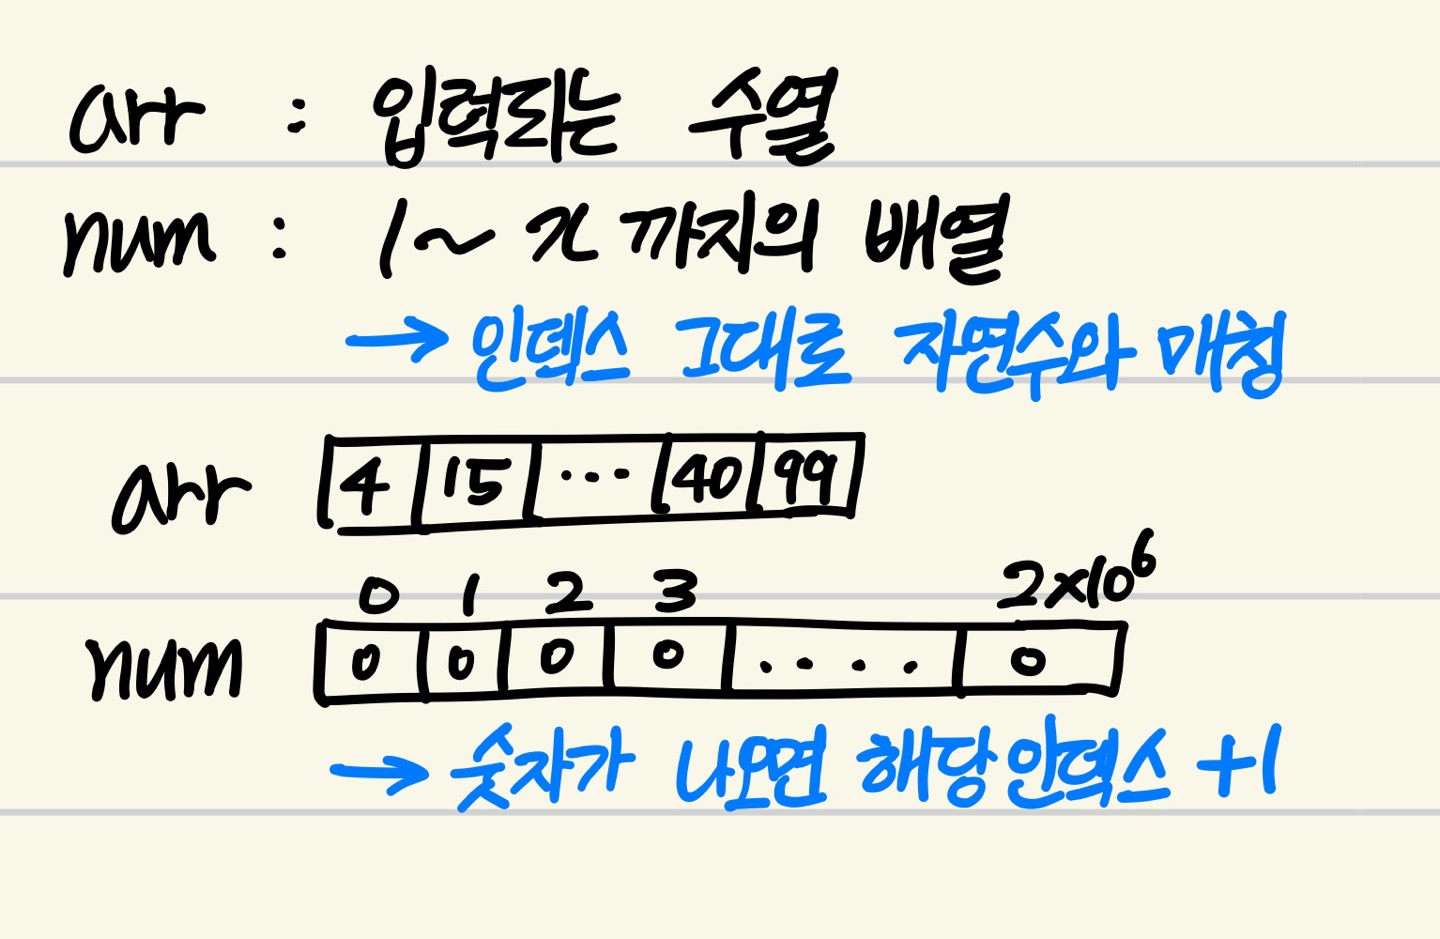 arr : 입력되는 수열
num : 1~x 까지의 배열
→ 인덱스 그대로 자연수와 매칭
arr 4 15 ... 40 99
0 1 2 3 2×10⁶
num 0 0 0 0 .... 0
→ 숫자가 나오면 해당인덱스 +1